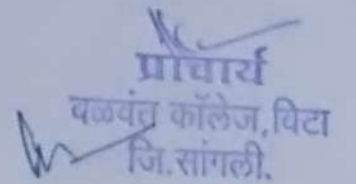 प्राचार्य
बळवंत कॉलेज, विटा
जि. सांगली.